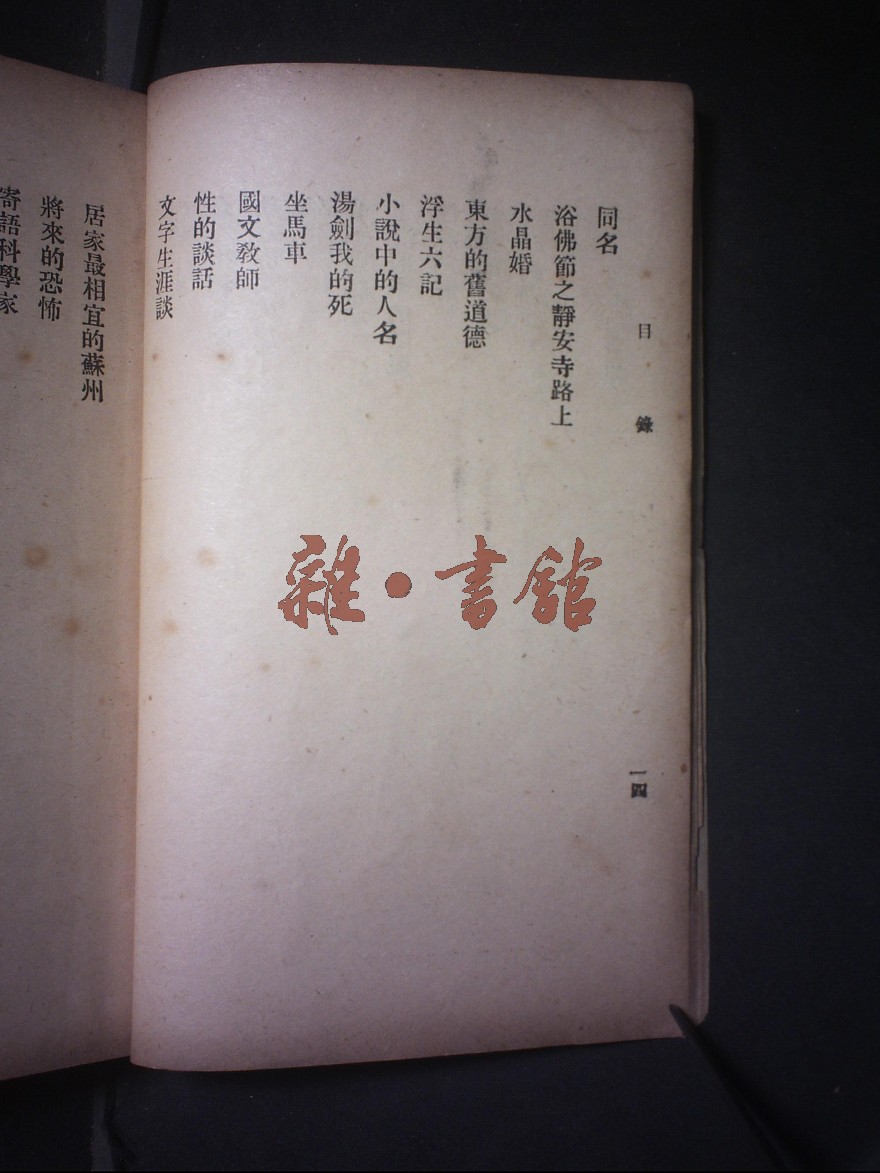 目錄
同名
浴佛節之靜安寺路上
水晶婚
東方的舊道德
浮生六記
小說中的人名
湯劍我的死
坐馬車
國文教師
性的談話
文字生涯談
一四
居家最相宜的蘇州
將來的恐怖
寄語科學家
雜·書館